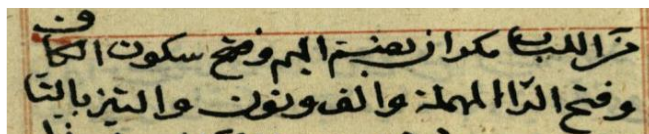 من اللباب مكران بضم الميم وفتح سكون الكاف
وفتح الرّا المهملة والف ونون والتيز بالتا